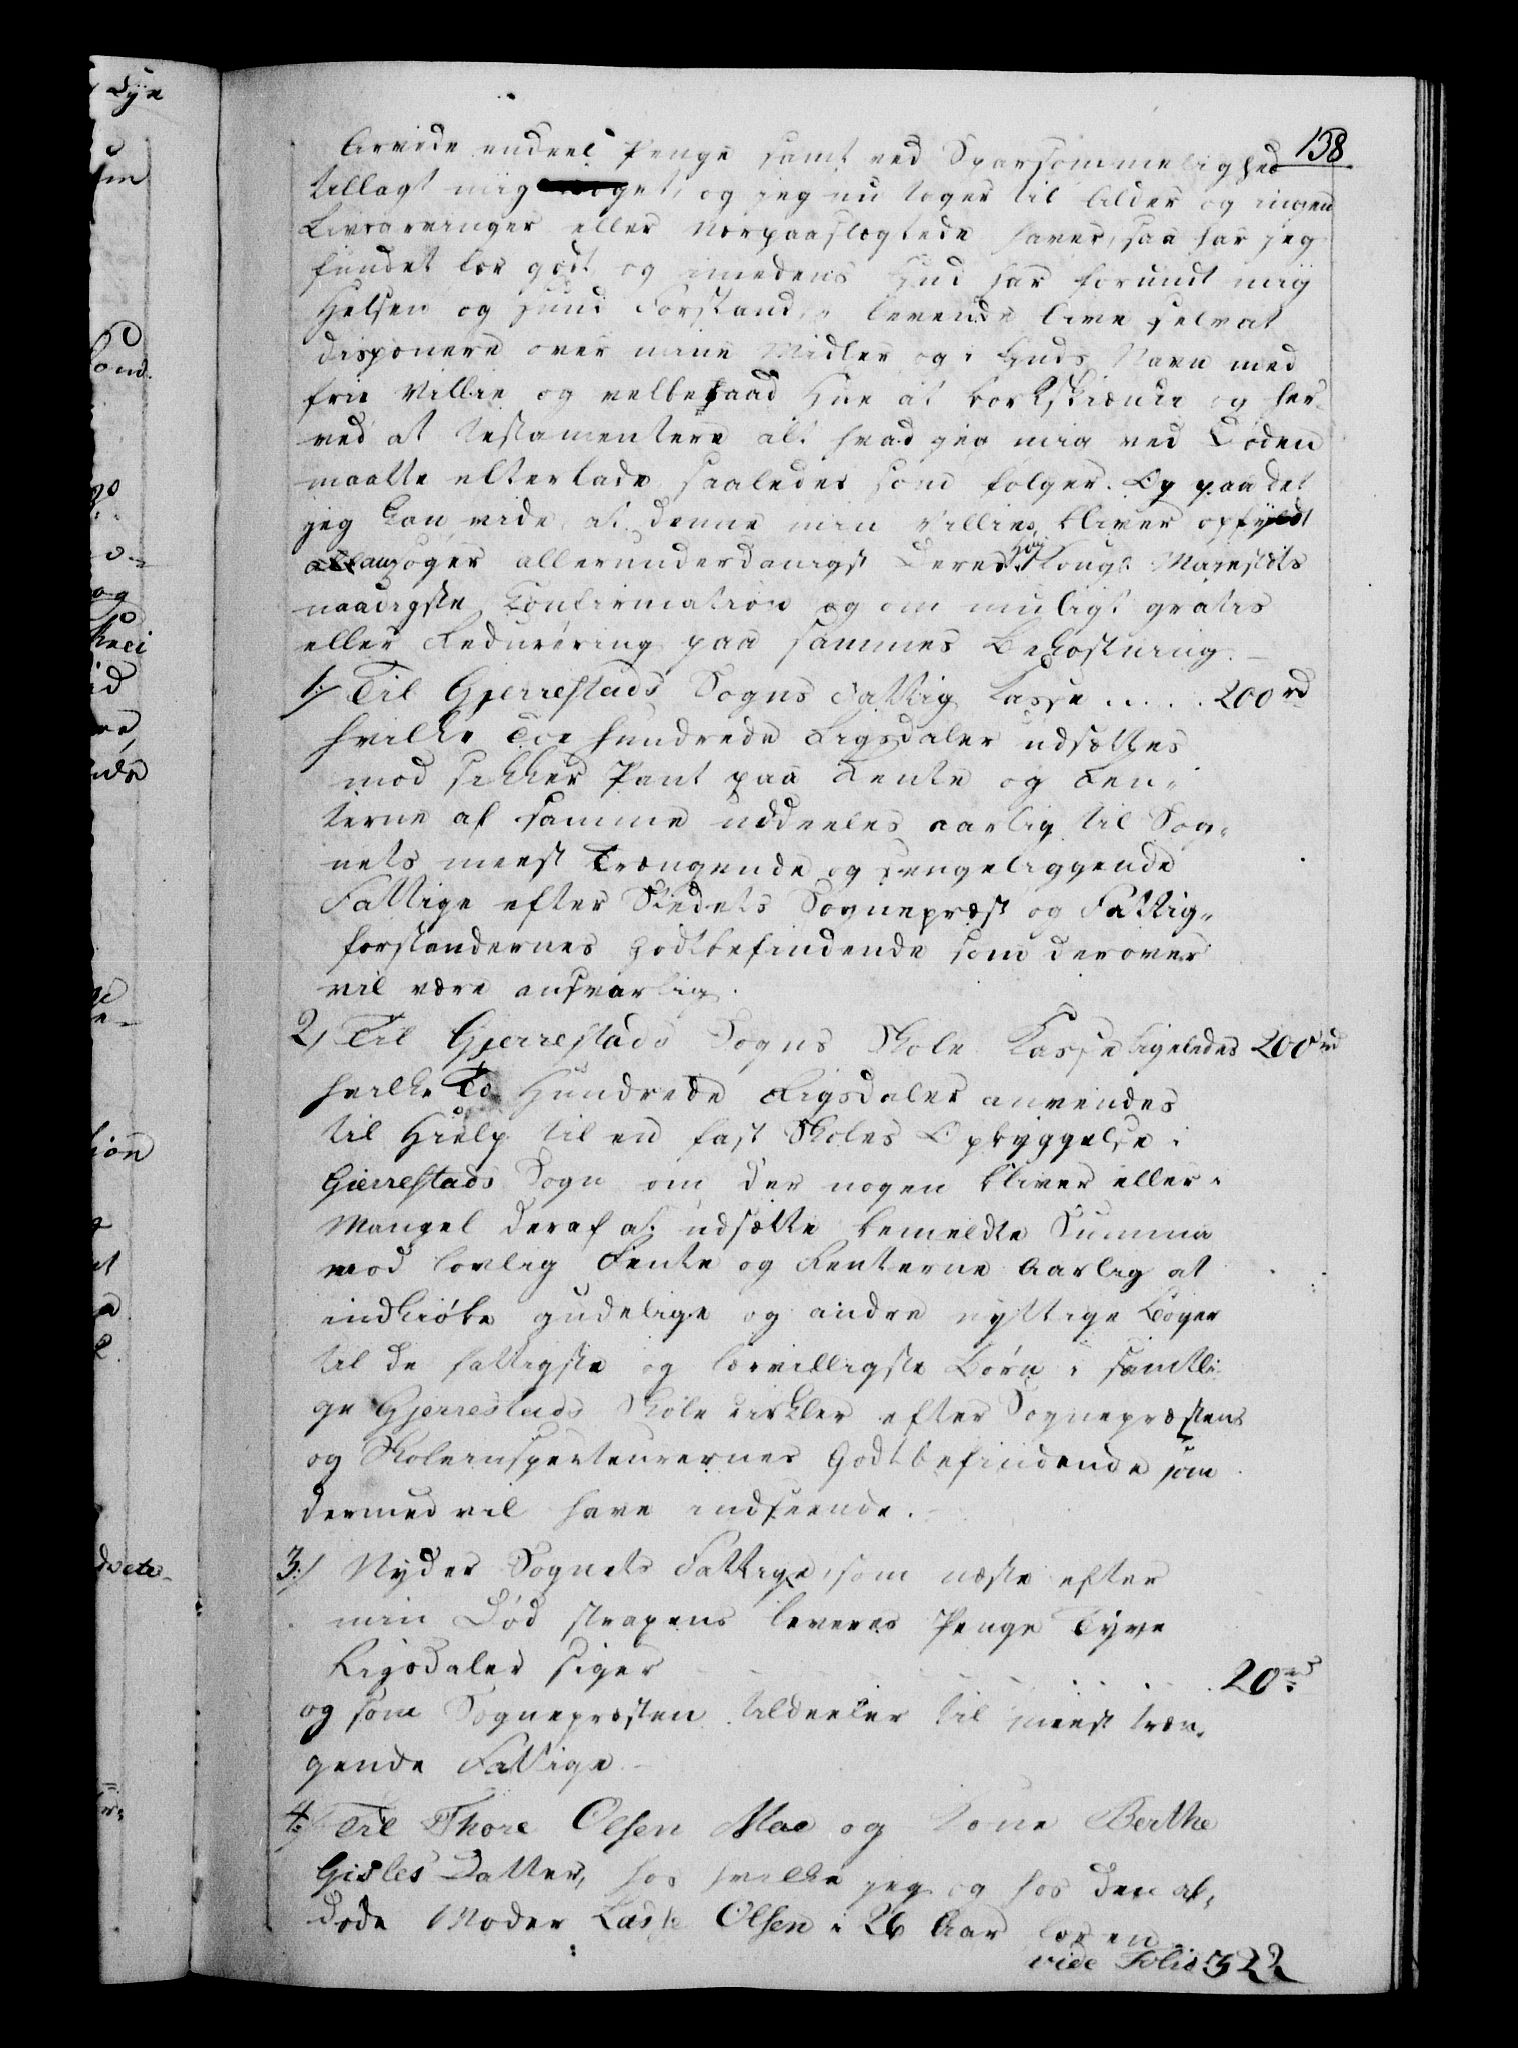 138
Arvede endeel Penge samt ved Sparsommelighed
tillagt mig noget, og jeg nu tager til Alder og ingen
Livsarvinger eller Nærpaaslægtede haver, saa har jeg
fundet for godt og imedens Gud har forundt mig
Helsen og sund Forstand, i levende live selv at
disponere over mine Midler og i Guds Navn med
frie Villie og velberaad Hue at bortskiænke og her-
ved at testamentere alt hvad jeg mig ved Døden
maatte efterlade saaledes som følger. Og paa det
jeg kan vide, at denne min Villies bliver opfyldt
ansøger allerunderdanigst Deres Høy Kongl: Majestæts
naadigste Confirmation og om muligt gratis
eller Reducering paa sammes Bekostning. –
1:/ Til Gjerrestads Sogns Fattig Kasse ..... 200 rd
hvilke Toe hundrede Rigsdaler udsættes
mod sikker Pant paa Rente og Ren-
terne af samme uddeeles aarlig til Sog-
nets meest Trængende og sengeliggende
Fattige efter Stedets Sognepræst og Fattig-
forstandernes Godtbefindende som derover
vil være ansvarlig.
2:/ Til Gjerrestads Sogns Skole Kasse ligeledes 200 rd
hvilke To Hundrede Rigsdaler anvendes
til Hielp til en fast Skoles Opbyggelse i
Gierrestads Sogn om der nogen bliver eller i
Mangel deraf at udsætte bemeldte Summa
mod lovlig Rente og Renterne Aarlig at
indkiøbe gudelige og andre nyttige Bøger
til de fattigste og lærvilligste Børn i samtli-
ge Gjerrestads Skole efter Sognepræstens
og Skoleinspecteurernes Godtbefindende som
dermed vil have indseende. –
3:/ Nyder Sognets Fattige, som næste efter
min Død straxens leveres Penge Tyve
Rigsdaler siger ..... 20 rd
og som Sognepræsten tildeeler til meest træn-
gende Fattige –
4:/ Til Thore Olsen Moe og Kone Berthe
Gisles Datter, hos hvilke jeg og hos den af-
døde Moder Olsen i 26 Aar
vide Folio 322